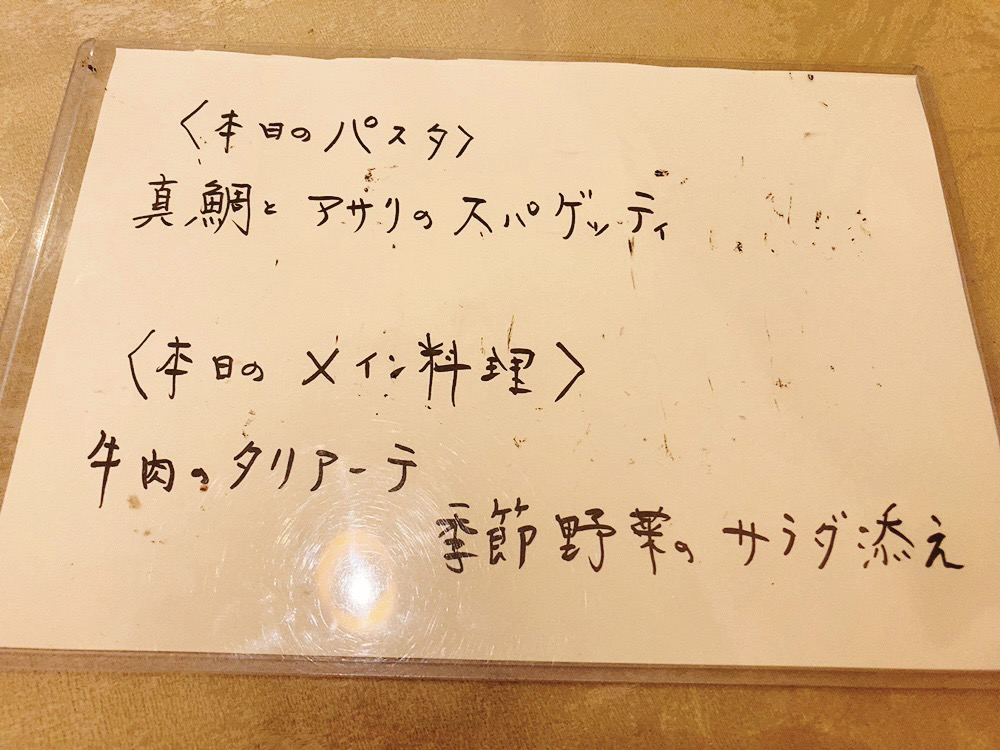 〈本日のパスタ〉
真鯛とアサリのスパゲッティ
〈本日のメイン料理〉
牛肉のタリアーテ
季節野菜のサラダ添え